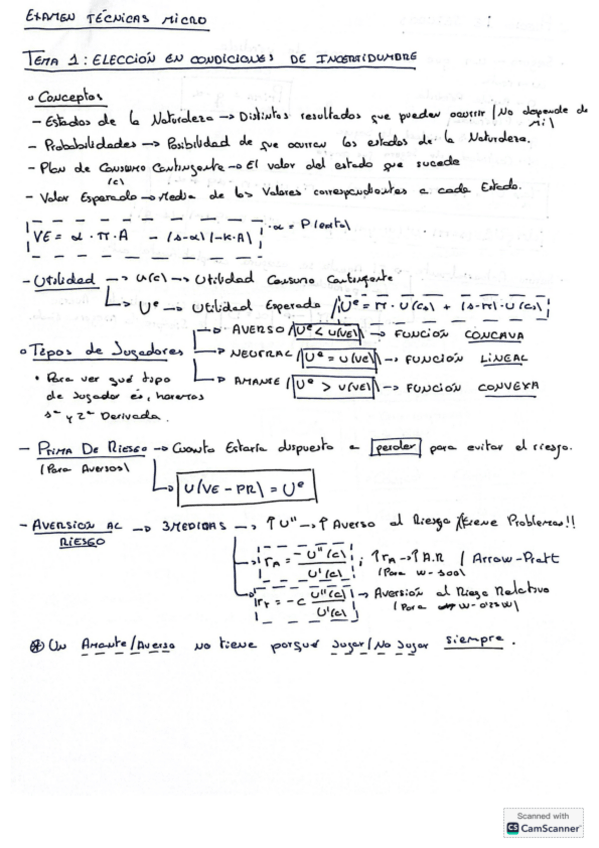 EXAMEN TÉCNICAS MICRO
TEMA 1: ELECCIÓN EN CONDICIONES DE INCERTIDUMBRE
• Conceptos
- Estados de la Naturaleza → Distintos resultados que pueden ocurrir / No depende de mi \
- Probabilidades → Posibilidad de que ocurran los estados de la Naturaleza.
- Plan de Consumo Contingente → El valor del estado que suceda
(c)
- Valor Esperado → Media de los Valores correspondientes a cada Estado.
VE = α · π · A - (1-α)(-K·A)
- Utilidad → u(c) → Utilidad Consumo Contingente
↳ Uᵉ → Utilidad Esperada / Uᵉ = π · U(c₁) + (1-π) · U(c₂)
• Tipos de Jugadores
→ AVERSO / Uᵉ < U(VE) → FUNCIÓN CÓNCAVA
→ NEUTRAL / Uᵉ = U(VE) → FUNCIÓN LINEAL
→ AMANTE / Uᵉ > U(VE) → FUNCIÓN CONVEXA
• Para ver qué tipo
de Jugador es, haremos
1ª y 2ª Derivada.
- PRIMA DE RIESGO → Cuanto Estaría dispuesto a perder para evitar el riesgo.
(Para Aversos)
↳ U(VE - PR) = Uᵉ
- AVERSIÓN AL RIESGO → 3 MEDIDAS → ↑ U'' → ↑ Averso al Riesgo / ¡Tiene Problemas!!
→ r_A = -U''(c) / U'(c) ; ↑r_A → ↑ A.R / Arrow-Pratt
(Para W-300)
→ r_r = -c U''(c) / U'(c) → Aversión al Riesgo Relativo
(Para W-0'25W)
⊛ Un Amante/Averso no tiene porqué Jugar/No Jugar siempre.
Scanned with
CS CamScanner